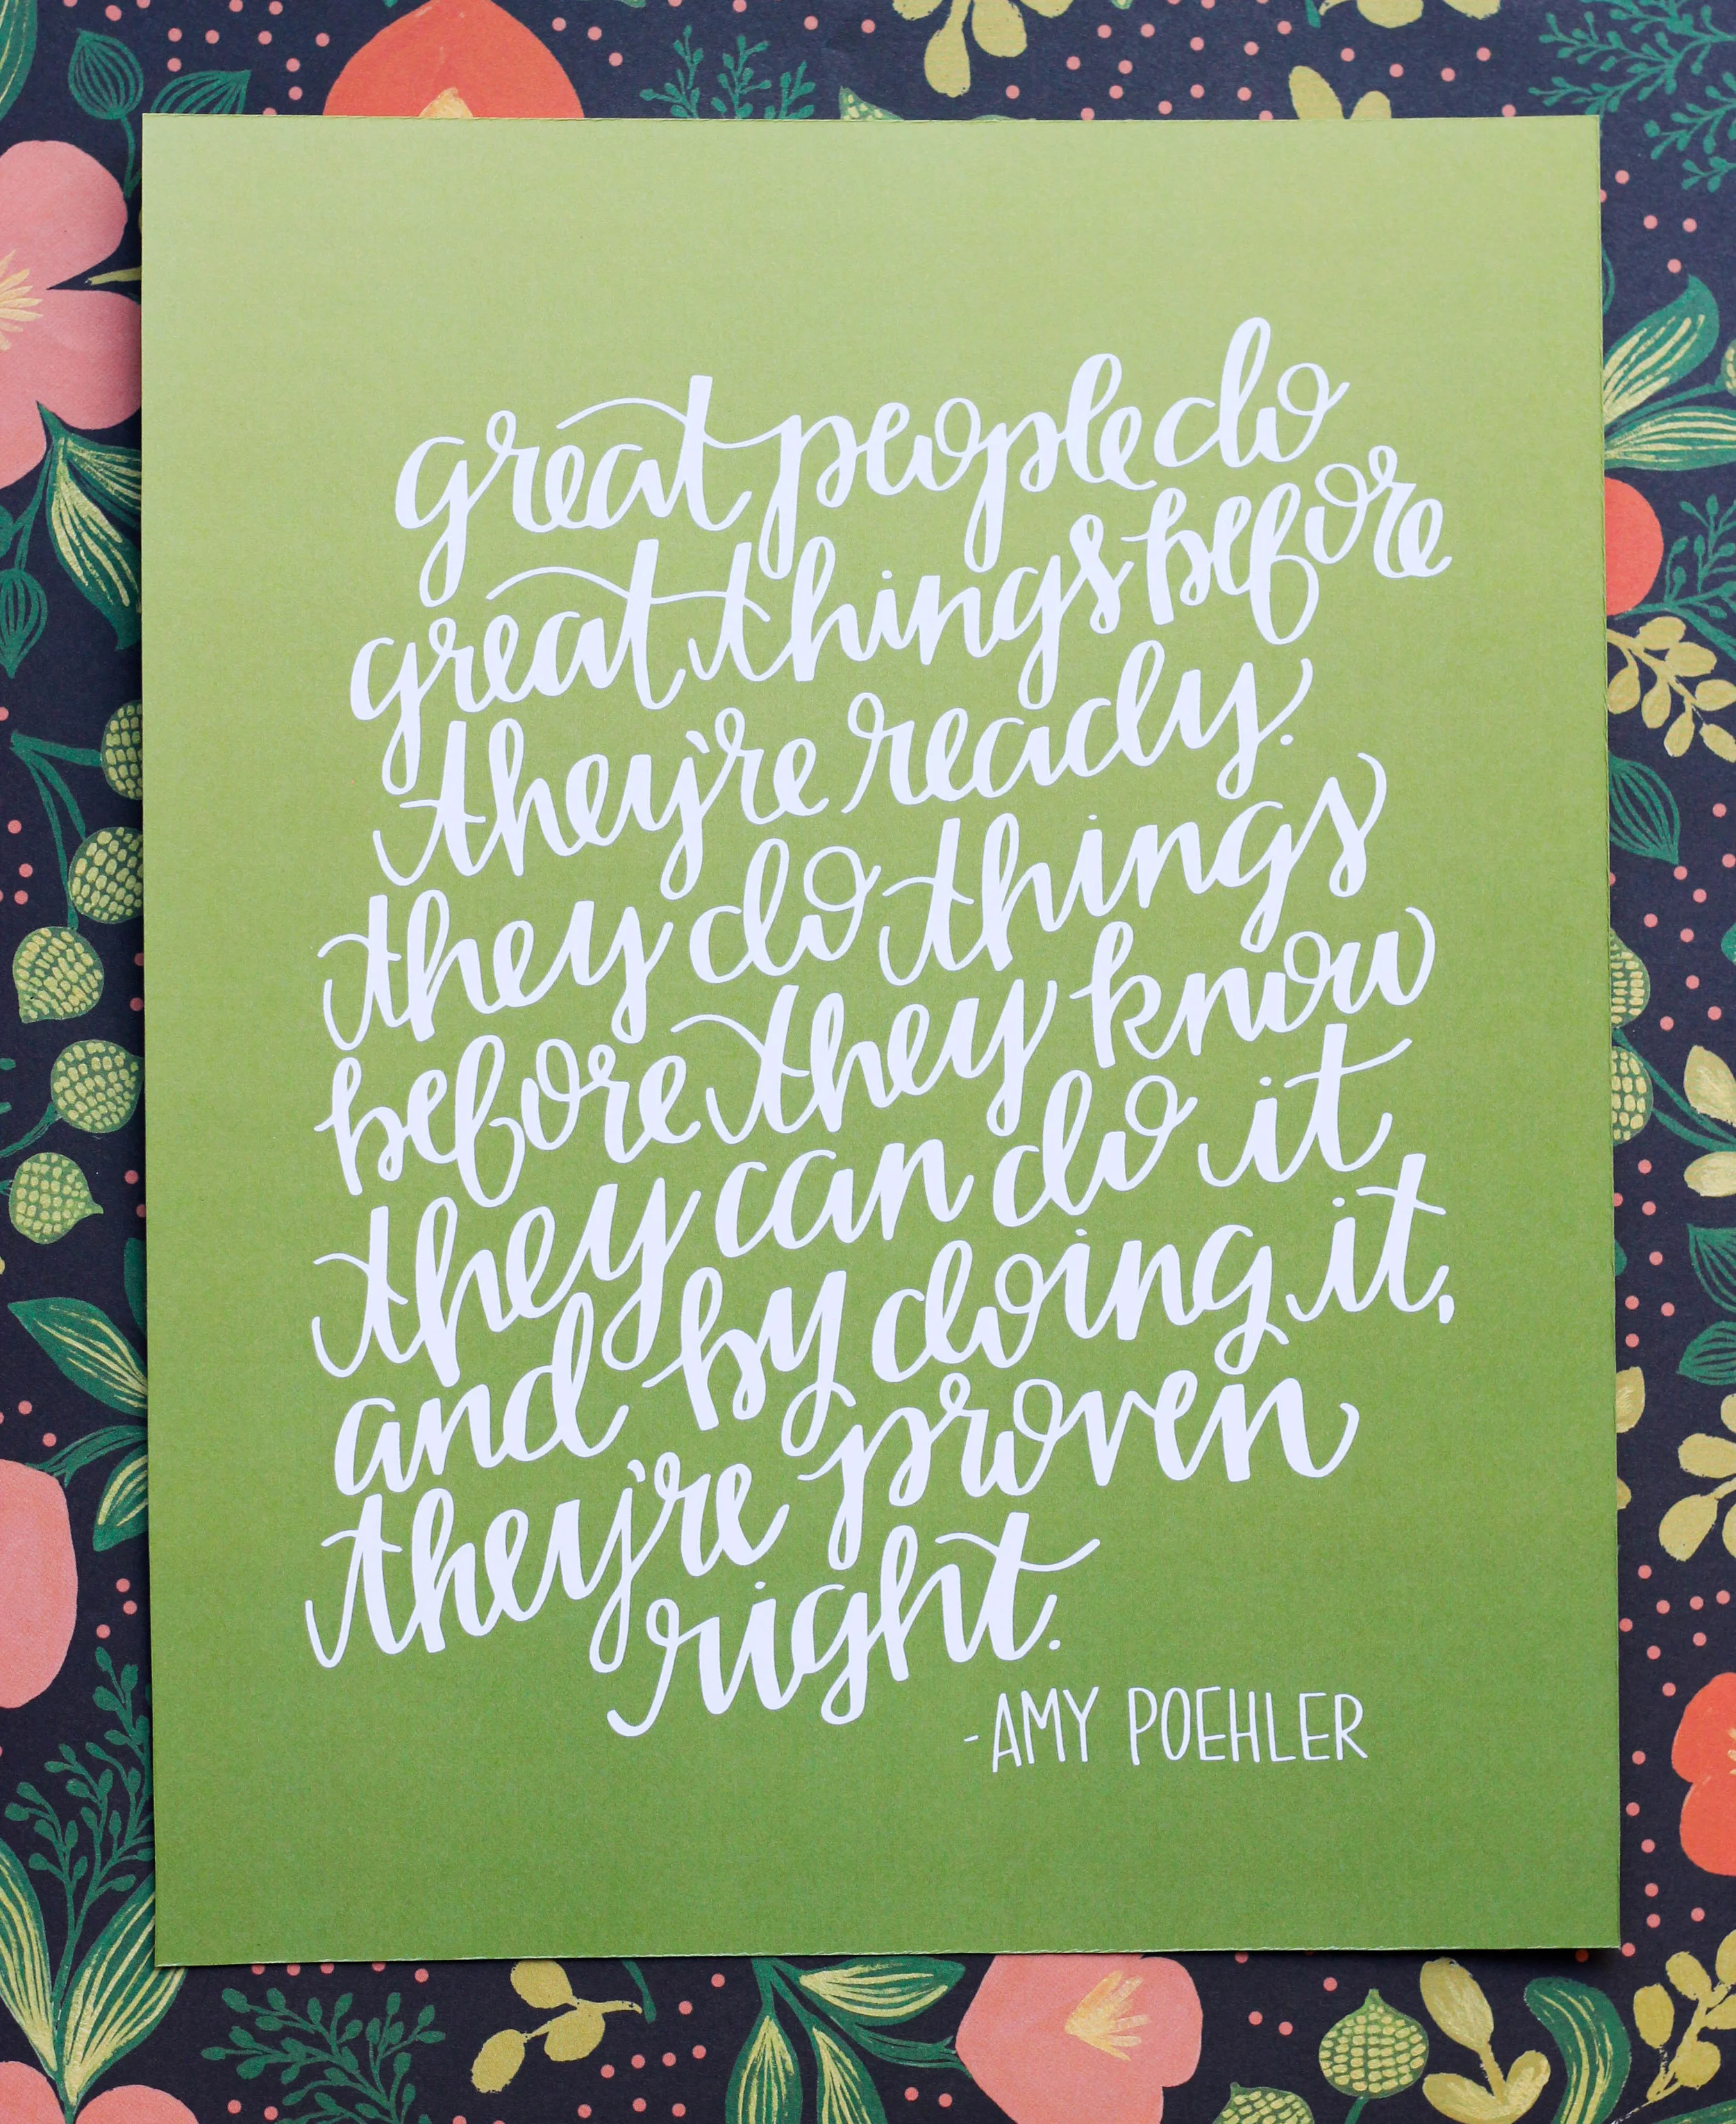 great people do
great things before
they're ready.
they do things
before they know
they can do it
and by doing it,
they're proven
right.
-AMY POEHLER